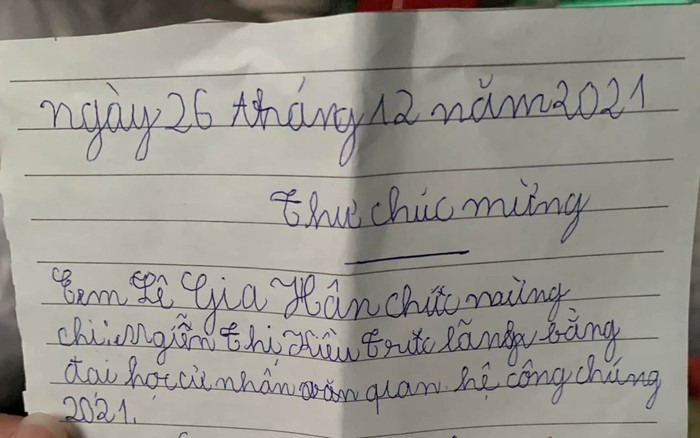 ngày 26 tháng 12 năm 2021
Thư chúc mừng
Em Lê Gia Hân chúc mừng
chị: Nguyễn Thị Kiều Trúc lãnh bằng
đại học cử nhân quan hệ công chúng
2021.